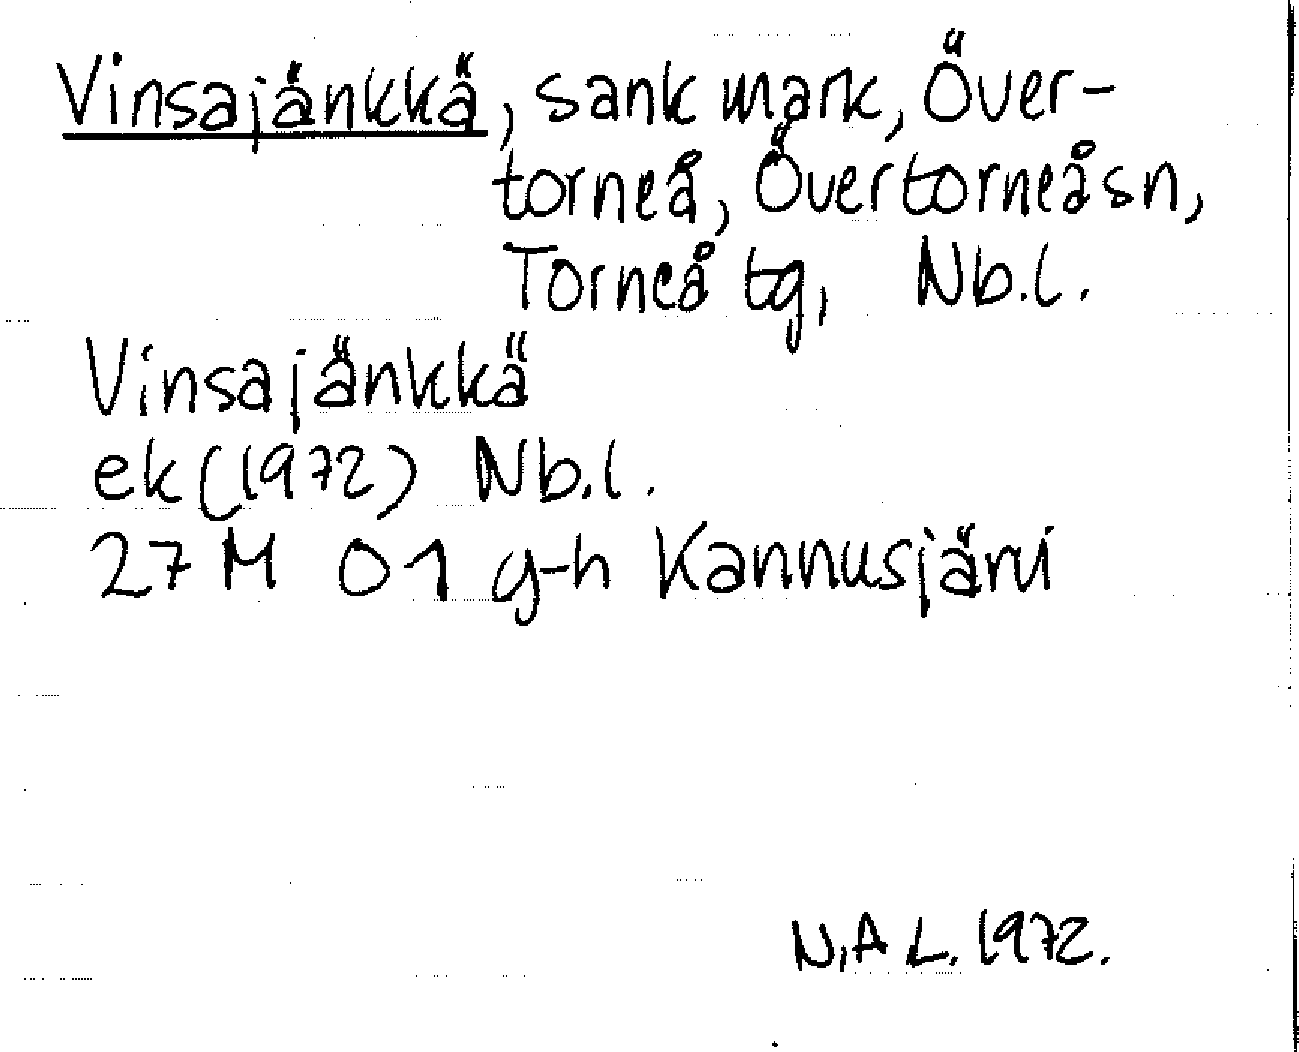 Vinsajänkkä, sank mark, Över-
torneå, Övertorneå sn,
Torneå tg, Nb.l.
Vinsajänkkä
ek (1972) Nb.l.
27 M 01 g-h Kannusjärvi
N.A L. 1972.